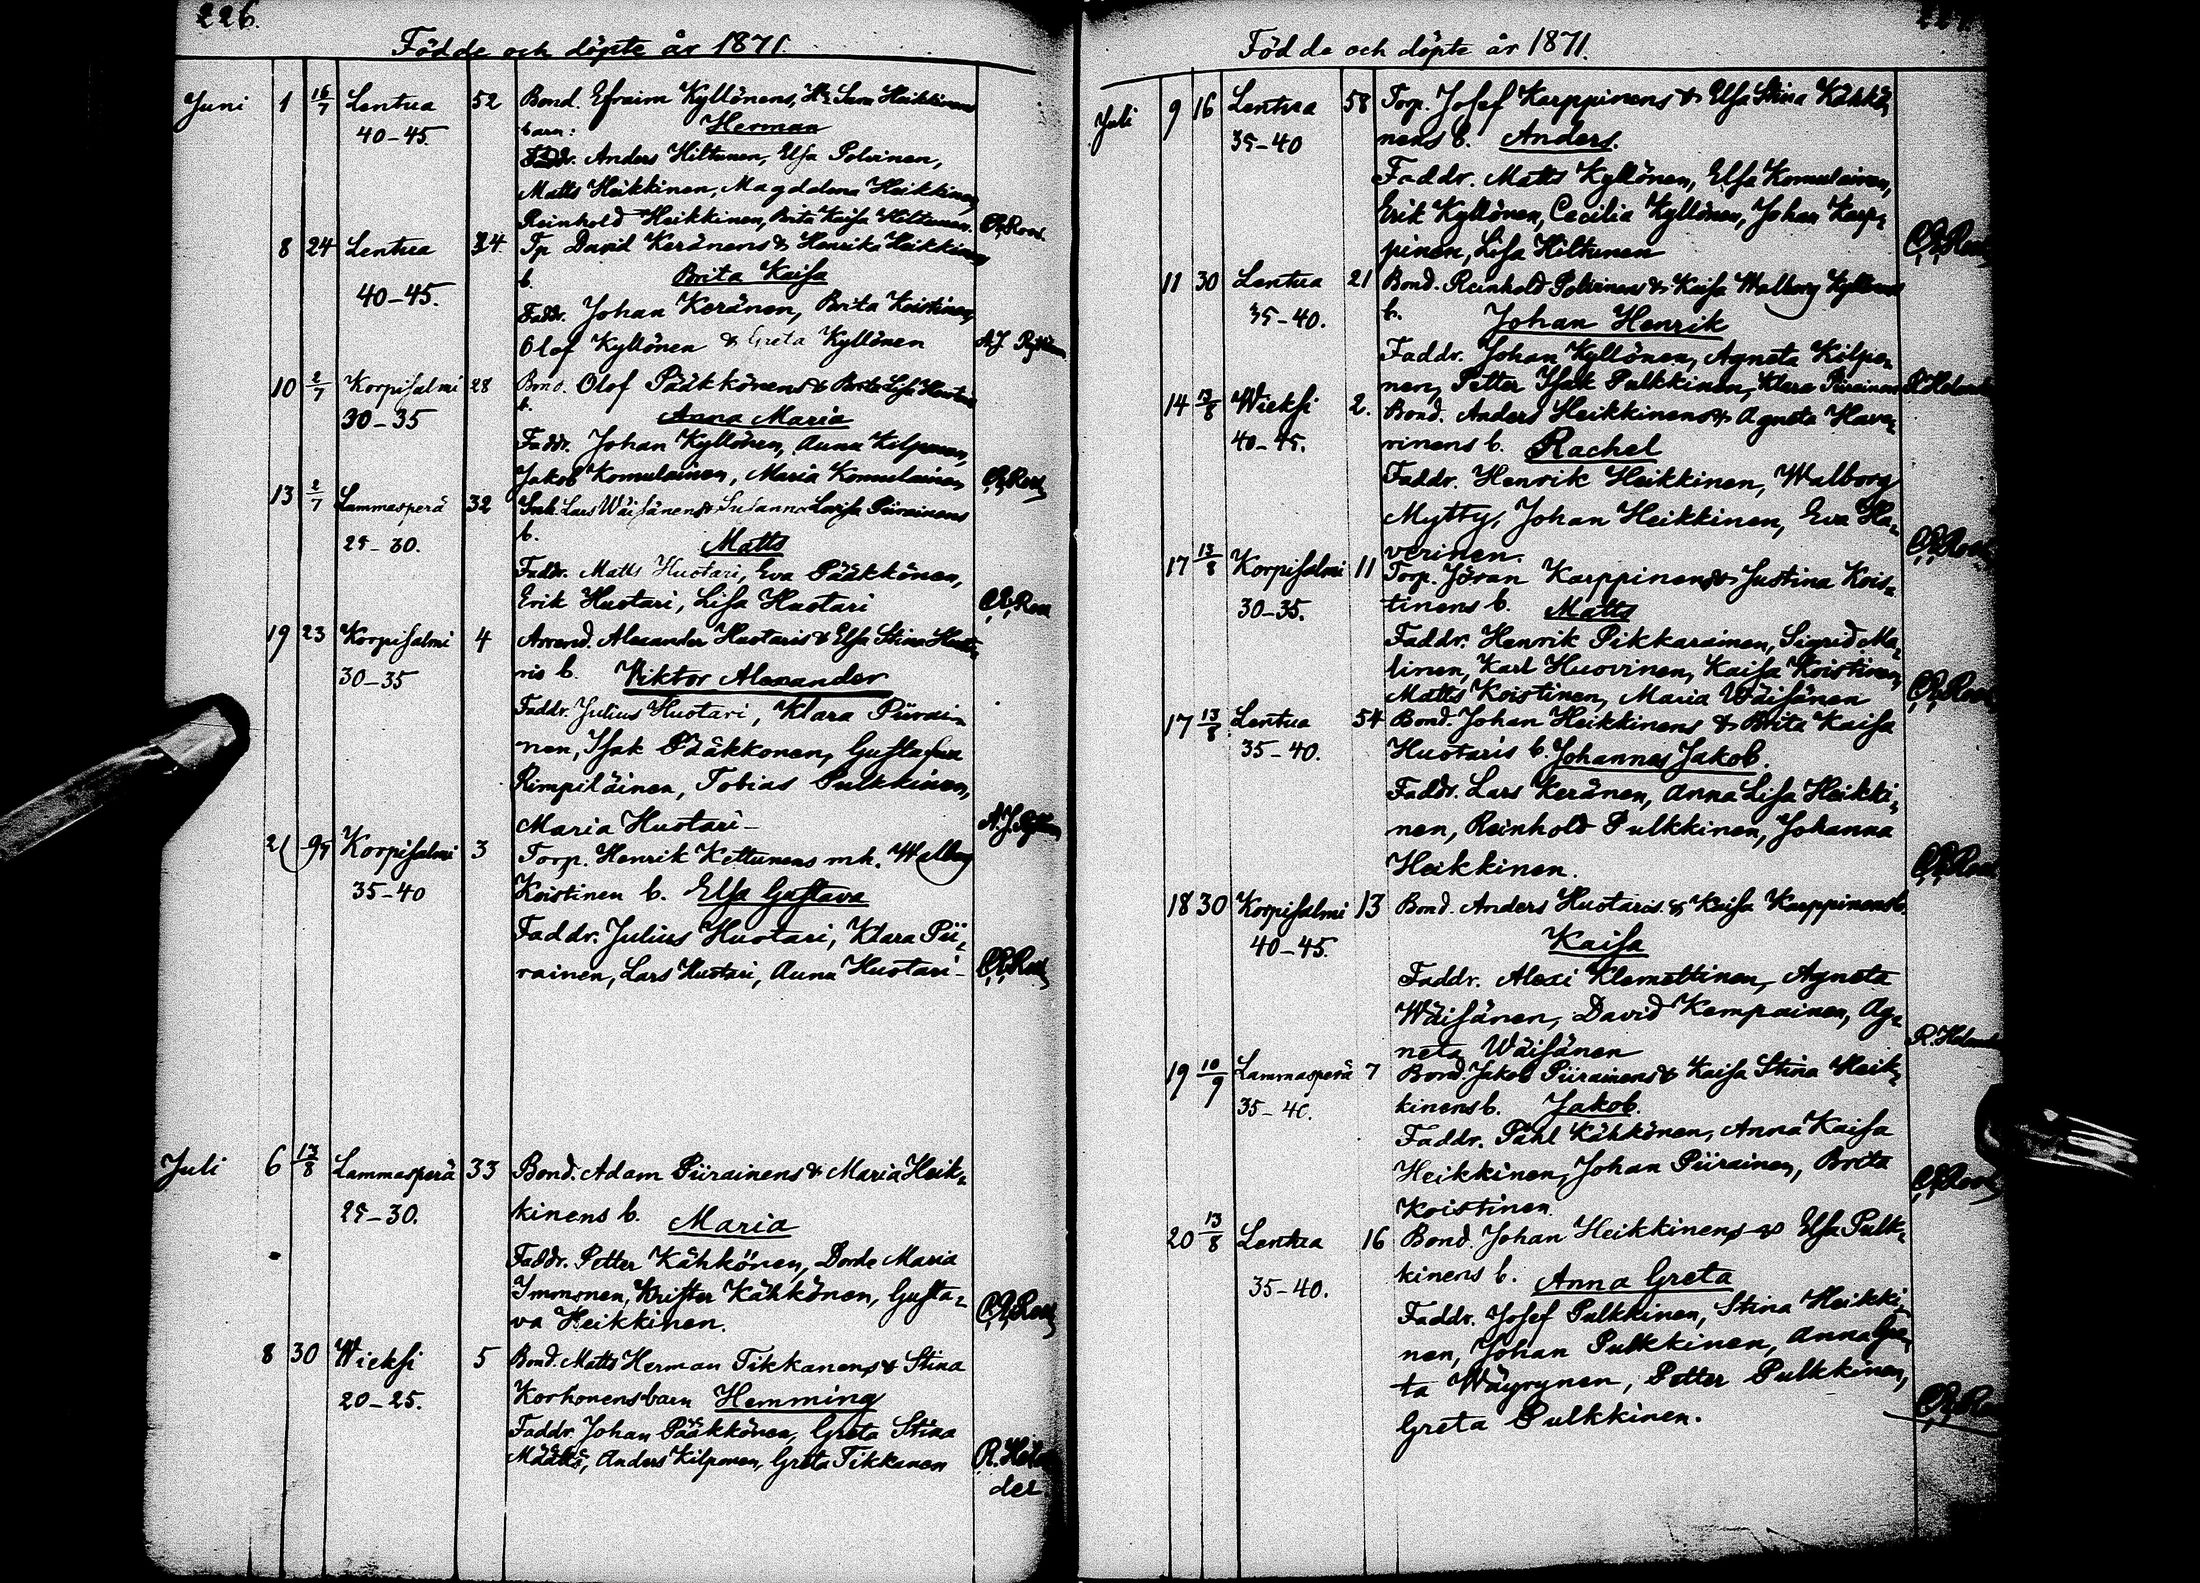 226.
Födde och döpte år 1871.
Juni 1 16/7 Lentua 52 Bond. Efraim Kyllönens, H. Sara Heikkinens
40-45. barn: Herman
Faddr. Anders Hiltunen, Elsa Polvinen,
Matts Heikkinen, Magdalena Heikkinen,
Reinhold Heikkinen, Brita Kaisa Hiltunen.
8 24 Lentua 24 Tp David Keränens & Henrika Heikkinens
b. Brita Kaisa
40-45. Faddr. Johan Keränen, Brita Koistinen,
Olof Kyllönen & Greta Kyllönen A.J.
10 2/7 Korpisalmi 28 Bond. Olof Pääkkönens & Brita Lisa
30-35 b. Anna Maria
Faddr. Johan Kyllönen, Anna Kilponen,
Jakob Komulainen, Maria Komulainen
13 2/7 Lammasperä 32 Inh. Lars Wäisänens & Susanna Lovisa Piirainens
25-30. b. Matts
Faddr. Matts Huotari, Eva Pääkkönen,
Erik Huotari, Lisa Huotari
19 23 Korpisalmi 4 Arrend. Alexander Huotaris & Elsa Stina Huota-
30-35 ris b. Viktor Alexander
Faddr. Julius Huotari, Klara Piirai-
nen, Isak Pääkkonen, Gustafva
Rimpiläinen, Tobias Pulkkinen,
Maria Huotari- A.J.
21 Korpisalmi 3 Torp. Henrik Kettunens m.h. Walborg
35-40 Koistinen b. Elsa Gustava
Faddr. Julius Huotari, Klara Pii-
rainen, Lars Huotari, Anna Huotari-
Juli 6 13/8 Lammasperä 33 Bond. Adam Piirainens & Maria Heik-
25-30. kinens b. Maria
Faddr. Petter Kähkönen, Dorde Maria
Immonen, Krister Kähkönen, Gusta-
va Heikkinen.
8 30 Wieksi 5 Bond. Matts Herman Tikkanens & Stina
20-25. Korhonens barn Hemming
Faddr. Johan Pääkkönen, Greta Stina
Määttä, Anders Kilponen, Greta Tikkanen R. Helan
der.
227.
Födde och döpte år 1871.
Juli 9 16 Lentua 58 Torp. Josef Karppinens & Elsa Stina Kähkö-
35-40 nens b. Anders.
Faddr. Matts Kyllönen, Elsa Komulainen,
Erik Kyllönen, Cecilia Kyllönen, Johan Karp-
pinen, Lisa Hiltunen
11 30 Lentua 21 Bond. Reinhold Polvinens & Kaisa Walborg Kyllönens
35-40. b. Johan Henrik
Faddr. Johan Kyllönen, Agneta Kilpo-
nen, Petter Isak Pulkkinen, Klara Piirainen
14 13/8 Wieksi 2. Bond. Anders Heikkinens & Agneta Have-
40-45. rinens b. Rachel
Faddr. Henrik Heikkinen, Walborg
Mytty, Johan Heikkinen, Eva Ha-
verinen.
17 13/8 Korpisalmi 11 Torp. Jöran Karppinens & Justina Kois-
30-35. tinens b. Matts
Faddr. Henrik Pikkarainen, Sigrid Ma-
linen, Karl Huovinen, Kaisa Koistinen,
Matts Koistinen, Maria Wäisänen
17 13/8 Lentua 54 Bond. Johan Heikkinens & Brita Kaisa
35-40. Huotaris b. Johannes Jakob.
Faddr. Lars Keränen, Anna Lisa Heikki-
nen, Reinhold Pulkkinen, Johanna
Heikkinen.
18 30 Korpisalmi 13 Bond. Anders Huotaris & Kaisa Karppinens b.
40-45. Kaisa
Faddr. Alexi Klemettinen, Agneta
Wäisänen, David Kempainen, Ag-
neta Wäisänen
19 10/9 Lammasperä 7 Bond. Jakob Piirainens & Kaisa Stina Heik-
35-40. kinens b. Jakob.
Faddr. Påhl Kähkönen, Anna Kaisa
Heikkinen, Johan Piirainen, Brita
Koistinen.
20 13/8 Lentua 16 Bond. Johan Heikkinens & Elsa Pulk-
35-40. kinens b. Anna Greta
Faddr. Josef Pulkkinen, Stina Heikki-
nen, Johan Pulkkinen, Anna Gre-
ta Wäyrynen, Petter Pulkkinen,
Greta Pulkkinen.